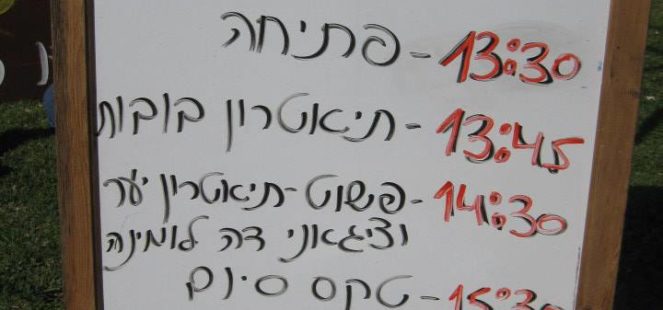 13:30 - פתיחה
13:45 - תיאטרון בובות
14:30 - פשוט - תיאטרון יער
וציגאני דה לומינה
15:30 - טקס סיום